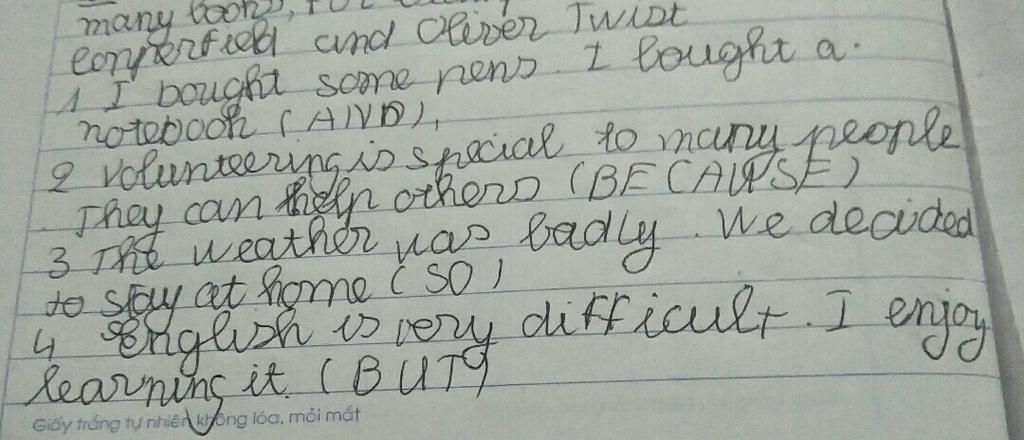 many books, for
Copperfield and Oliver Twist
1 I bought some pens. I bought a
notebook (AND),
2 volunteering is special to many people
They can help others (BECAUSE)
3 The weather was badly. We decided
to stay at home (SO)
4 English is very difficult. I enjoy
learning it. (BUT)
Giấy trắng tự nhiên không lóa, mỏi mắt